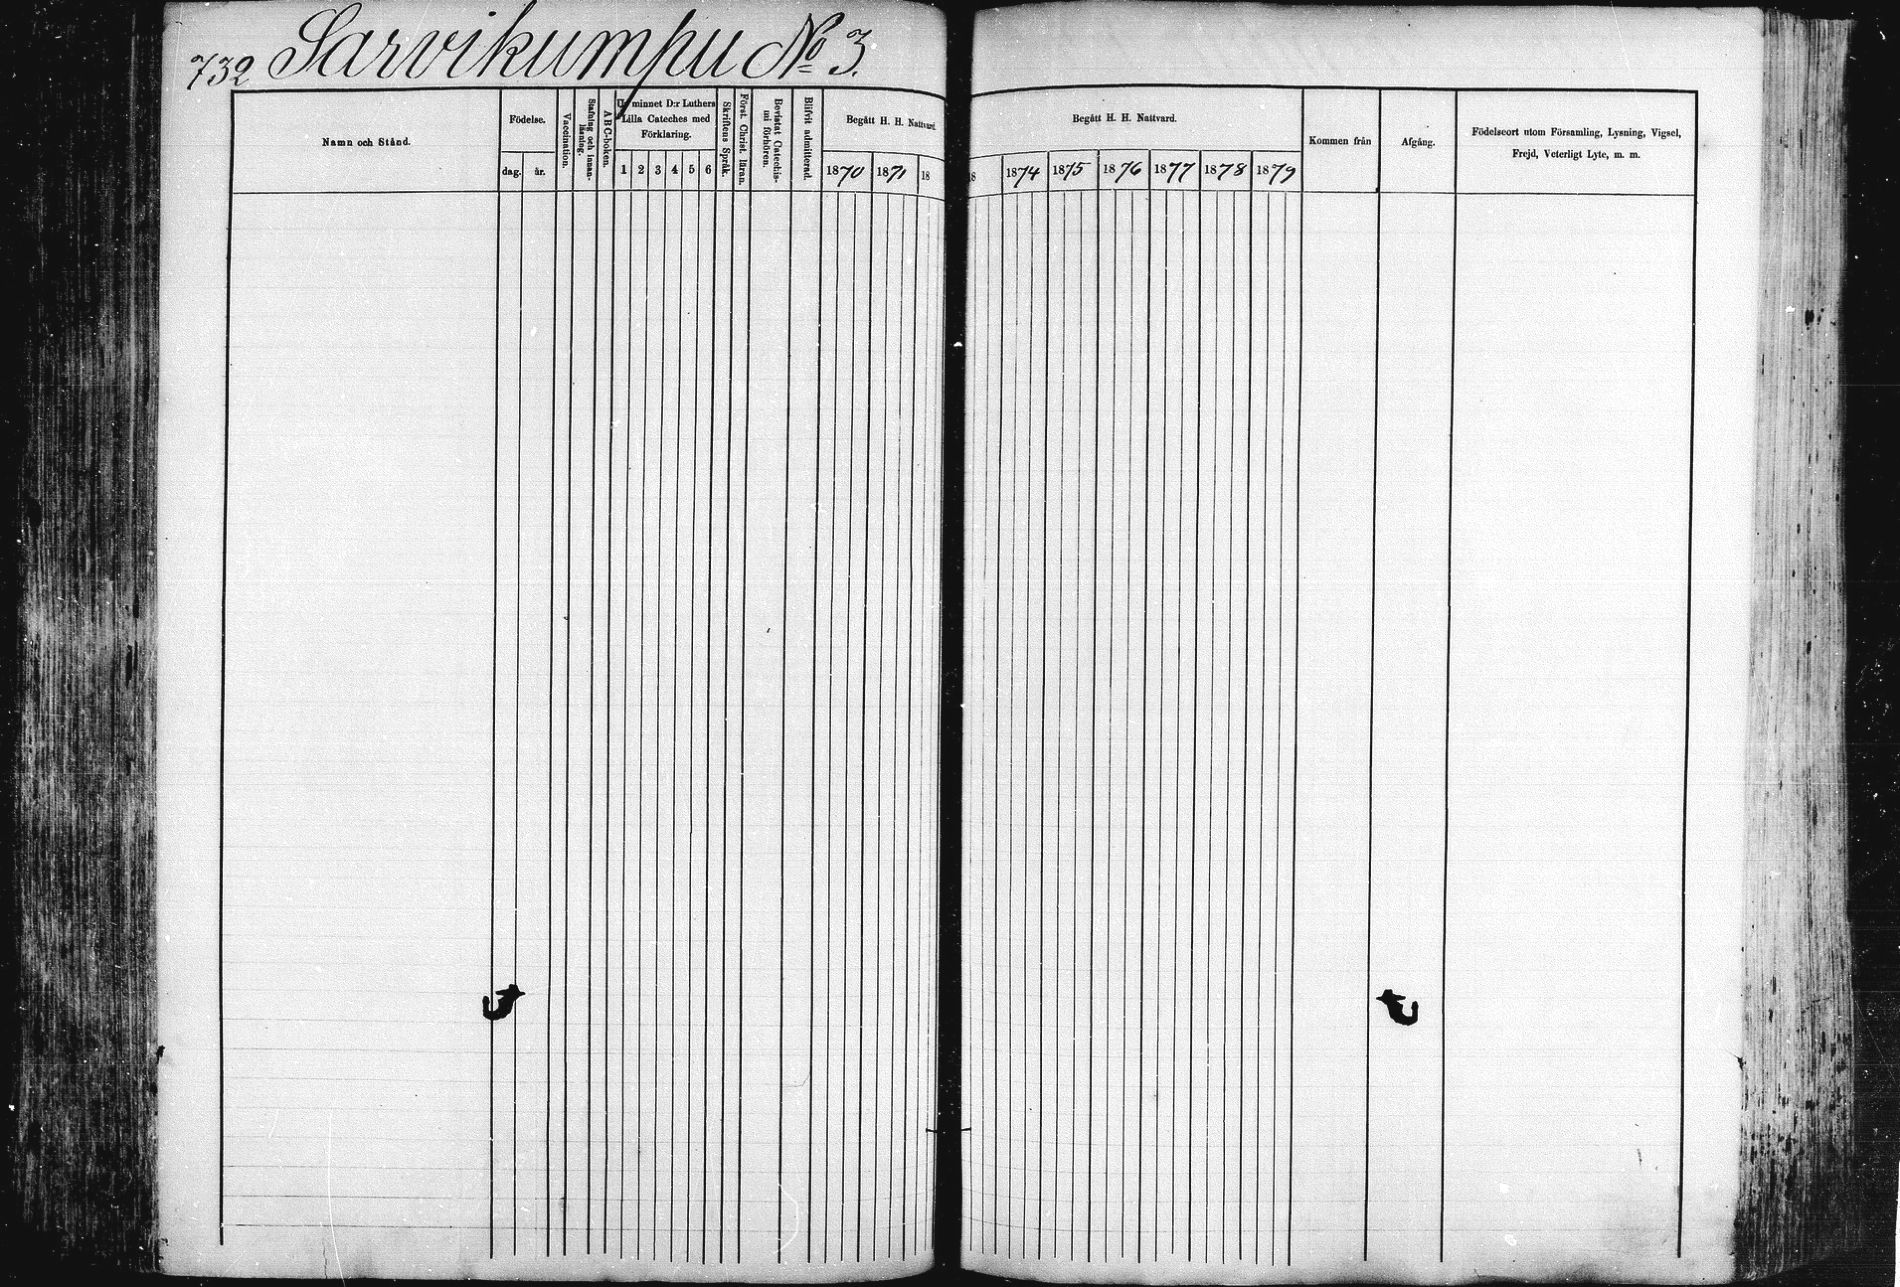 732 Sarvikumpu No 3.
Namn och Stånd.
Födelse.
dag.
år.
Vaccination.
Stafning och innan-
läsning.
ABC-boken.
Ur minnet D:r Luthers
Lilla Cateches med
Förklaring.
1 2 3 4 5 6
Skriftens Språk.
Först. Christ. läran.
Bevistat Catechis-
mi förhören.
Blifvit admitterad.
Begått H. H. Nattvard.
1870 1871 18
Begått H. H. Nattvard.
18 1874 1875 1876 1877 1878 1879
Kommen från
Afgång.
Födelseort utom Församling, Lysning, Vigsel,
Frejd, Veterligt Lyte, m. m.